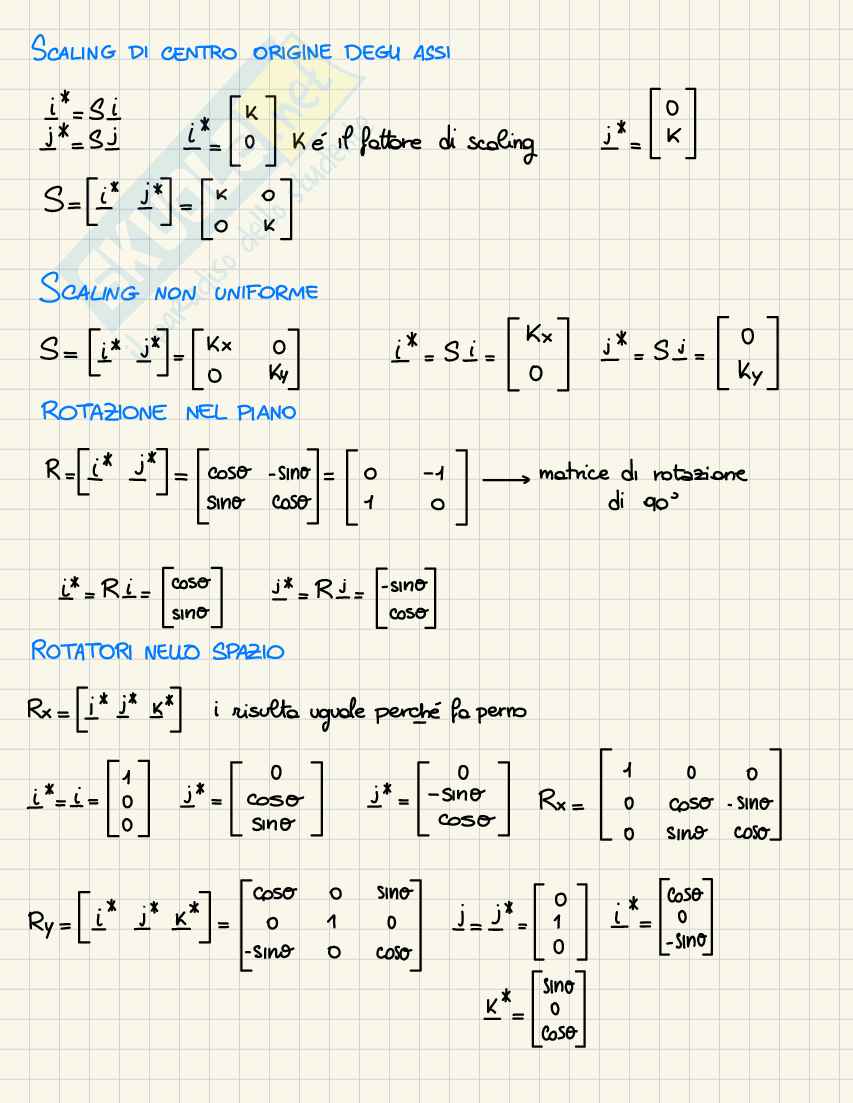 SCALING DI CENTRO ORIGINE DEGLI ASSI
i* = S i
j* = S j
i* = [K 0] K é il fattore di scaling j* = [0 K]
S = [i* j*] = [K 0; 0 K]
SCALING NON UNIFORME
S = [i* j*] = [Kx 0; 0 Ky] i* = S i = [Kx 0] j* = S j = [0 Ky]
ROTAZIONE NEL PIANO
R = [i* j*] = [cosθ -sinθ; sinθ cosθ] = [0 -1; 1 0] → matrice di rotazione
di 90°
i* = R i = [cosθ sinθ] j* = R j = [-sinθ cosθ]
ROTATORI NELLO SPAZIO
Rx = [i* j* K*] i risulta uguale perché fa perno
i* = i = [1 0 0] j* = [0 cosθ sinθ] j* = [0 -sinθ cosθ] Rx = [1 0 0; 0 cosθ -sinθ; 0 sinθ cosθ]
Ry = [i* j* K*] = [cosθ 0 sinθ; 0 1 0; -sinθ 0 cosθ] j = j* = [0 1 0] i* = [cosθ 0 -sinθ]
K* = [sinθ 0 cosθ]
skuola.net
il paradiso dello studente